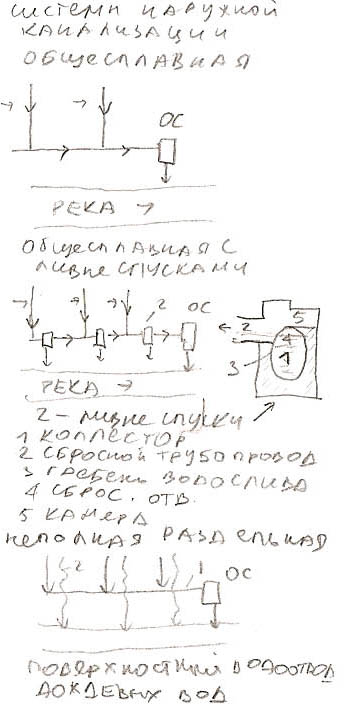 СИСТЕМЫ НАРУЖНОЙ
КАНАЛИЗАЦИИ
ОБЩЕСПЛАВНАЯ
ОС
РЕКА →
ОБЩЕСПЛАВНАЯ С
ЛИВНЕСПУСКАМИ
2
ОС
5
2
4
3
1
РЕКА →
2 - ЛИВНЕСПУСКИ
1 КОЛЛЕКТОР
2 СБРОСНОЙ ТРУБОПРОВОД
3 ГРЕБЕНЬ ВОДОСЛИВА
4 СБРОС. ОТВ.
5 КАМЕРА
НЕПОЛНАЯ РАЗДЕЛЬНАЯ
2
1
ОС
ПОВЕРХНОСТНЫЙ ВОДООТВОД
ДОЖДЕВЫХ ВОД